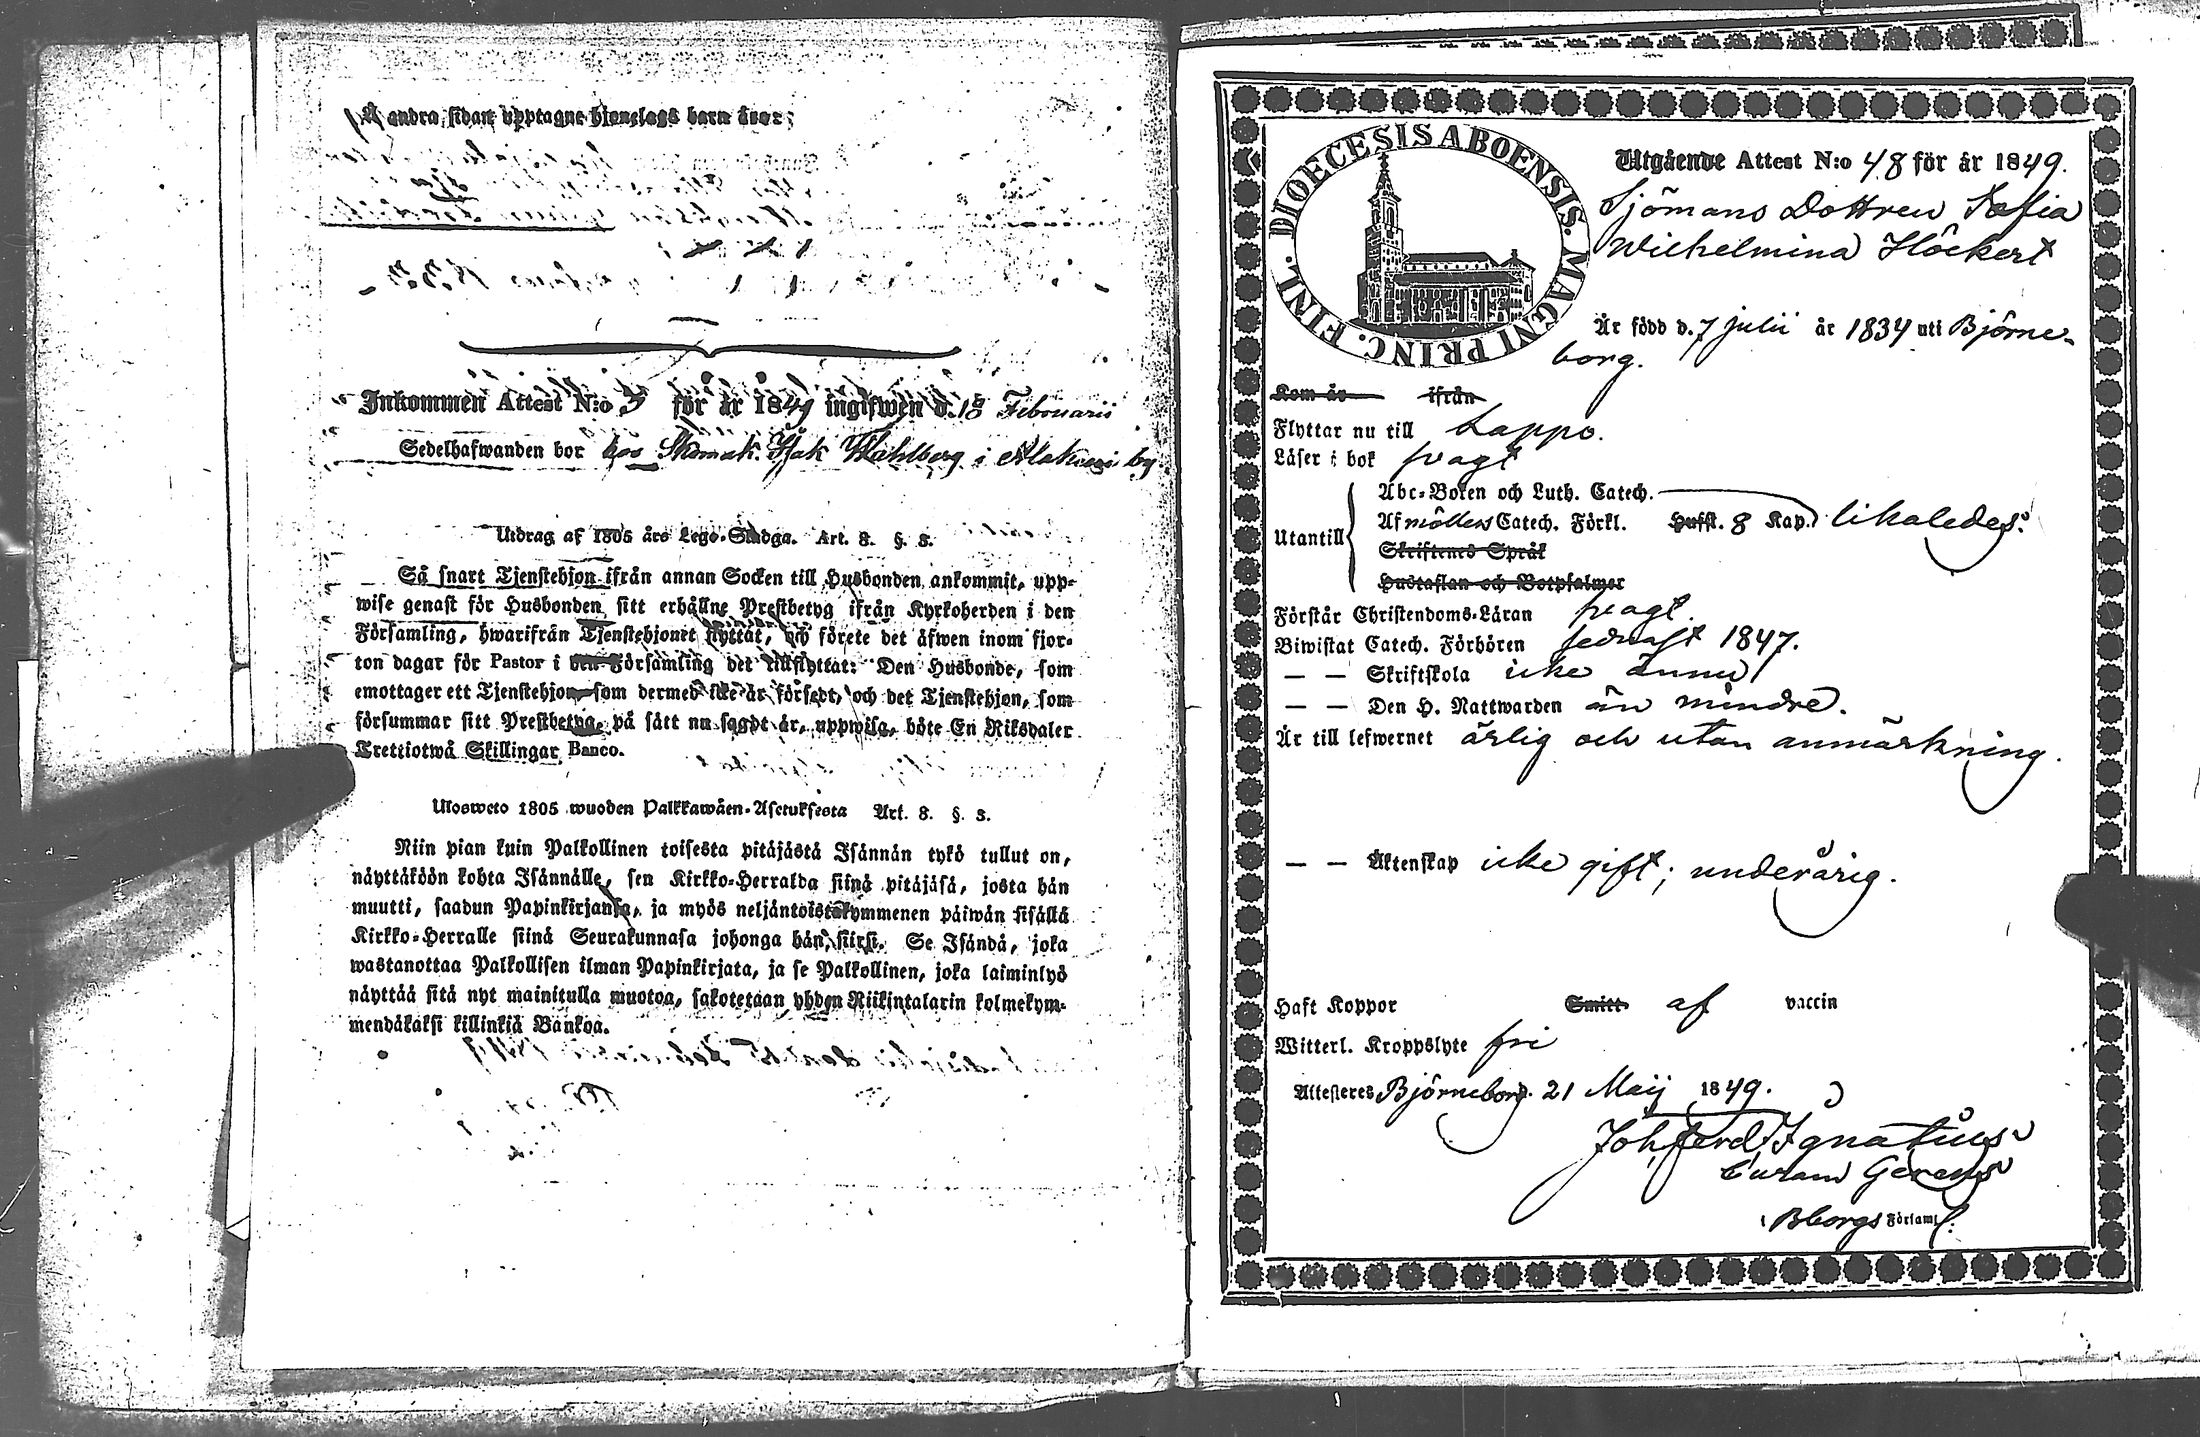 Å andra sidan upptagne hjonelags barn äro:
Inkommen Attest N:o 3 för år 1849 ingifwen d. 18 Februarii
Sedelhafwanden bor hos Skomak. Isak Wahlberg i by
Utdrag af 1805 års Lego-Stadga. Art. 8. §. 3.
Så snart Tjenstehjon ifrån annan Socken till Husbonden ankommit, upp-
wise genast för Husbonden sitt erhållne Prestbetyg ifrån Kyrkoherden i den
Församling, hwarifrån Tjenstehjonet flyttat, och förete det äfwen inom fjor-
ton dagar för Pastor i den Församling det tillflyttat: Den Husbonde, som
emottager ett Tjenstehjon som dermed icke är försedt, och det Tjenstehjon, som
försummar sitt Prestbetyg, på sätt nu sagdt är, uppwisa, böte En Riksdaler
Trettiotwå Skillingar Banco.
Ulosweto 1805 wuoden Palkkawäen-Asetuksesta Art. 8. §. 3.
Niin pian kuin Palkollinen toisesta pitäjästä Isännän tykö tullut on,
näyttäköön kohta Isännälle, sen Kirkko-Herralda siinä pitäjäsä, josta hän
muutti, saadun Papinkirjansa, ja myös neljäntoistakymmenen päiwän sisällä
Kirkko-Herralle siinä Seurakunnasa johonga hän siirsi. Se Isändä, joka
wastanottaa Palkollisen ilman Papinkirjata, ja se Palkollinen, joka laiminlyö
näyttää sitä nyt mainitulla muotoa, sakotetaan yhden Riikintalarin kolmekym-
mendäkaksi killinkiä Bankoa.
DIOECESIS ABOENSIS. MAGNI PRINC. FINL.
Utgående Attest N:o 48 för år 1849.
Sjömans Dottren Sofia
Wilhelmina Höckert
Är född d. 7 julii år 1834 uti Björne-
borg.
Kom år ifrån
Flyttar nu till Lappo.
Läser i bok svagt
Utantill
Abc-Boken och Luth. Catech.
Af möllers Catech. Förkl. Hufst. 8 Kap. likaledes.
Skriftenes Språk
Hustaflan och Botpsalmer
Förstår Christendoms-Läran svagt.
Biwistat Catech. Förhören sednast 1847.
— — Skriftskola icke ännu
— — Den H. Nattwarden än mindre.
Är till lefwernet ärlig och utan anmärkning.
— — Äktenskap icke gift; underårig.
Haft Koppor Smitt af vaccin
Witterl. Kroppslyte fri
Attesteres Björneborg. 21 Maij 1849.
Joh. Ferd. Ignatius
Curam Gerens
i Bborgs Församl: